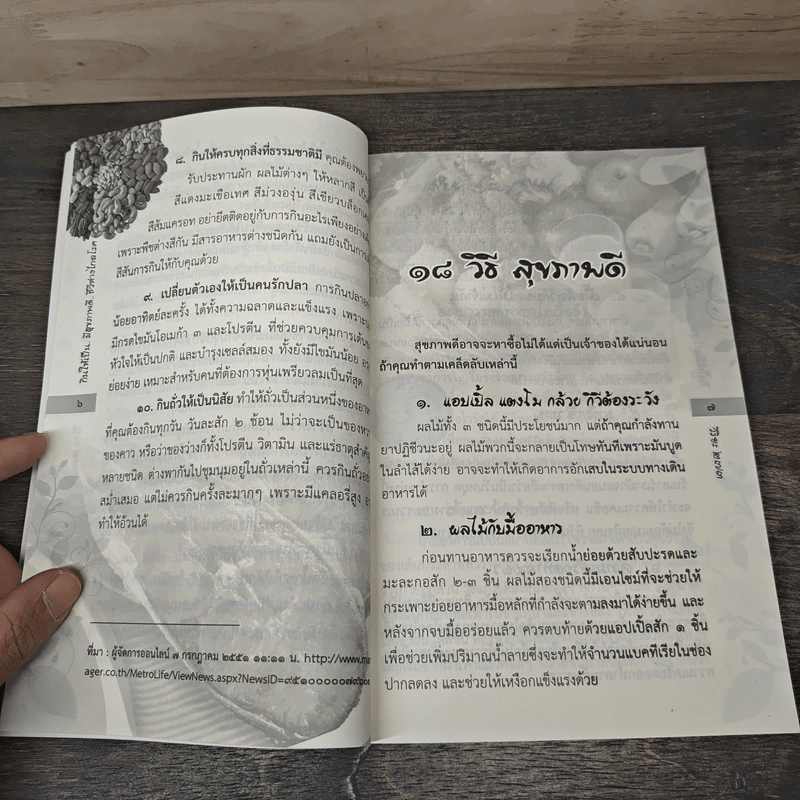 ๘. กินให้ครบทุกสิ่งที่ธรรมชาติมี คุณต้อง
รับประทานผัก ผลไม้ต่างๆ ให้หลากสี
สีแดงมะเขือเทศ สีม่วงองุ่น สีเขียวบล็อก
สีส้มแครอท อย่ายึดติดอยู่กับการกินอะไรเพียงอย่าง
เพราะพืชต่างสีกัน มีสารอาหารต่างชนิดกัน แถมยังเป็นการ
สีสันการกินให้กับคุณด้วย
๙. เปลี่ยนตัวเองให้เป็นคนรักปลา การกินปลา
น้อยอาทิตย์ละครั้ง ได้ทั้งความฉลาดและแข็งแรง เพราะ
มีกรดไขมันโอเมก้า ๓ และโปรตีน ที่ช่วยควบคุมการเต้น
หัวใจให้เป็นปกติ และบำรุงเซลล์สมอง ทั้งยังมีไขมันน้อย
ย่อยง่าย เหมาะสำหรับคนที่ต้องการหุ่นเพรียวลมเป็นที่สุด
๑๐. กินถั่วให้เป็นนิสัย ทำให้ถั่วเป็นส่วนหนึ่งของ
ที่คุณต้องกินทุกวัน วันละสัก ๒ ช้อน ไม่ว่าจะเป็นของ
ของคาว หรือว่าของว่างก็ทั้งโปรตีน วิตามิน และแร่ธาตุสำคัญ
หลายชนิด ต่างพากันไปชุมนุมอยู่ในถั่วเหล่านี้ ควรกินถั่ว
สม่ำเสมอ แต่ไม่ควรกินครั้งละมากๆ เพราะมีแคลอรีสูง
ทำให้อ้วนได้
ที่มา : ผู้จัดการออนไลน์ ๗ กรกฎาคม ๒๕๕๑ ๑๑:๑๑ น. http://www.
ager.co.th/MetroLife/ViewNews.aspx?NewsID=
กินให้เป็น. มีสุขภาพดี. ชีวีห่างไกลโรค
๖
๑๘ วิธี สุขภาพดี
สุขภาพดีอาจจะหาซื้อไม่ได้แต่เป็นเจ้าของได้แน่นอน
ถ้าคุณทำตามเคล็ดลับเหล่านี้
๑. แอปเปิ้ล แตงโม กล้วย กีวีต้องระวัง
ผลไม้ทั้ง ๓ ชนิดนี้มีประโยชน์มาก แต่ถ้าคุณกำลังทาน
ยาปฏิชีวนะอยู่ ผลไม้พวกนี้จะกลายเป็นโทษทันทีเพราะมันบูด
ในลำไส้ได้ง่าย อาจจะทำให้เกิดอาการอักเสบในระบบทางเดิน
อาหารได้
๒. ผลไม้กับมื้ออาหาร
ก่อนทานอาหารควรจะเรียกน้ำย่อยด้วยสับปะรดและ
มะละกอสัก ๒-๓ ชิ้น ผลไม้สองชนิดนี้มีเอนไซม์ที่จะช่วยให้
กระเพาะย่อยอาหารมื้อหลักที่กำลังจะตามลงมาได้ง่ายขึ้น และ
หลังจากจบมื้ออร่อยแล้ว ควรตบท้ายด้วยแอปเปิ้ลสัก ๑ ชิ้น
เพื่อช่วยเพิ่มปริมาณน้ำลายซึ่งจะทำให้จำนวนแบคทีเรียในช่อง
ปากลดลง และช่วยให้เหงือกแข็งแรงด้วย
๗